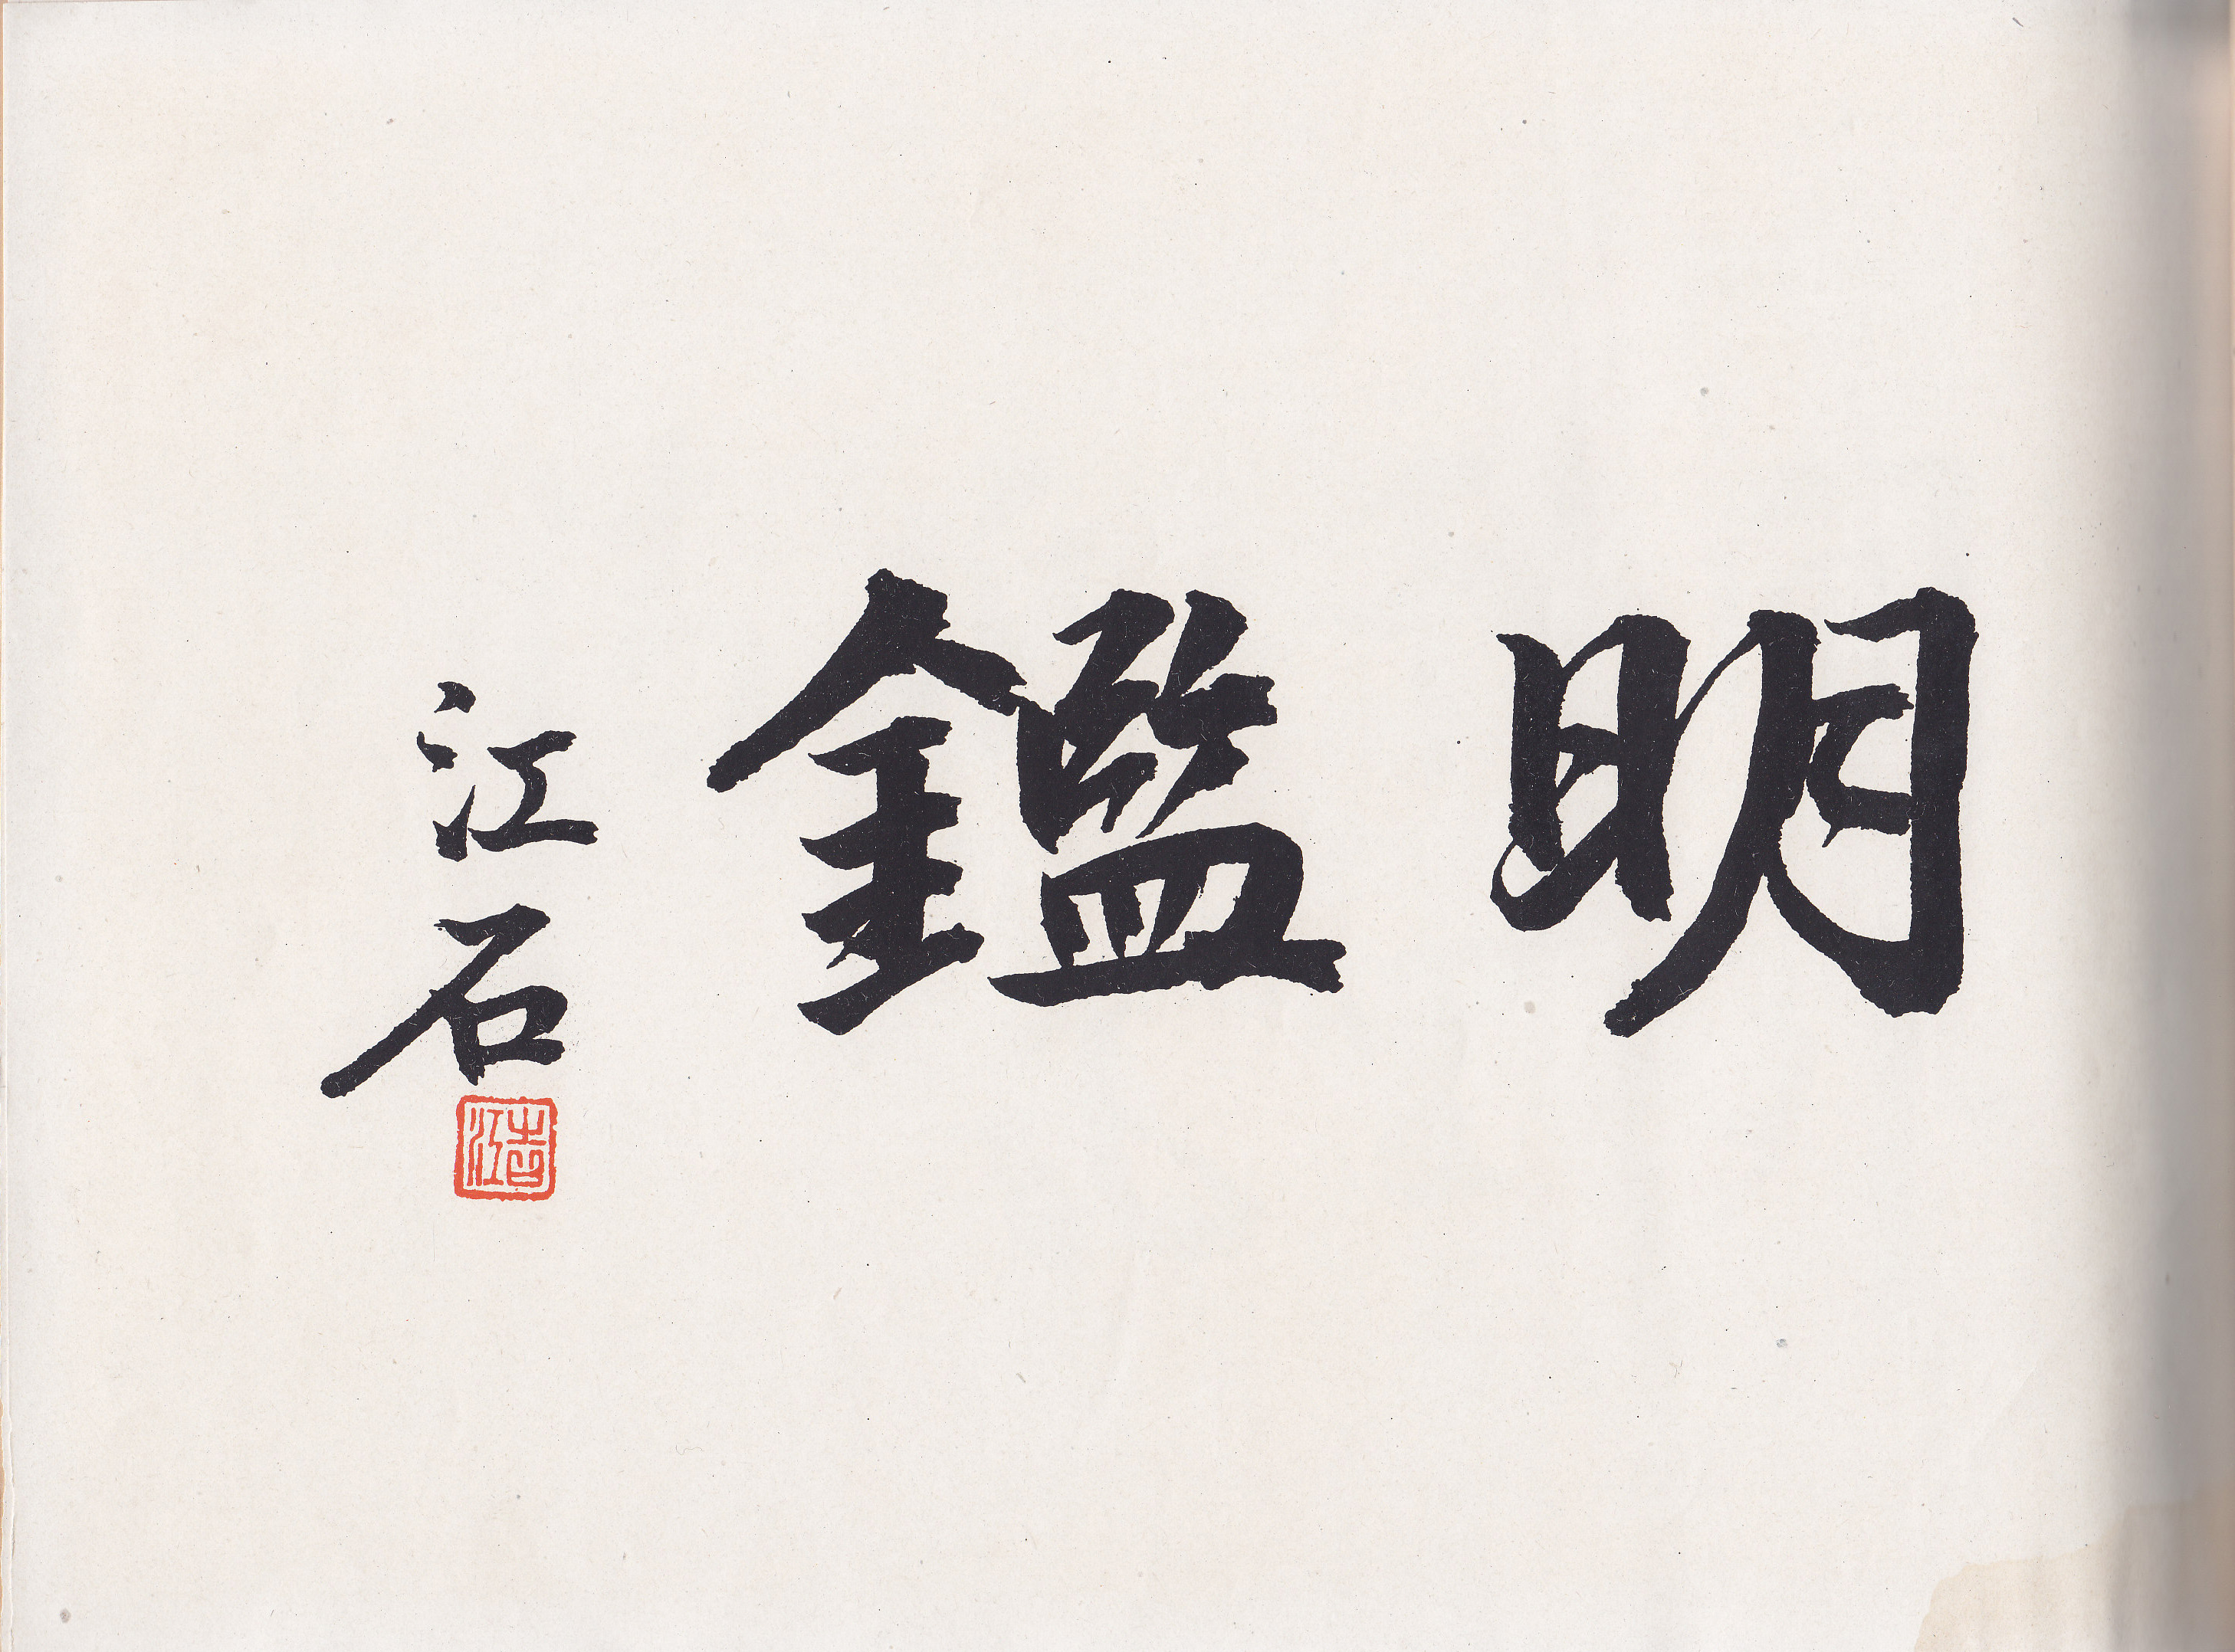 明鑑
江石